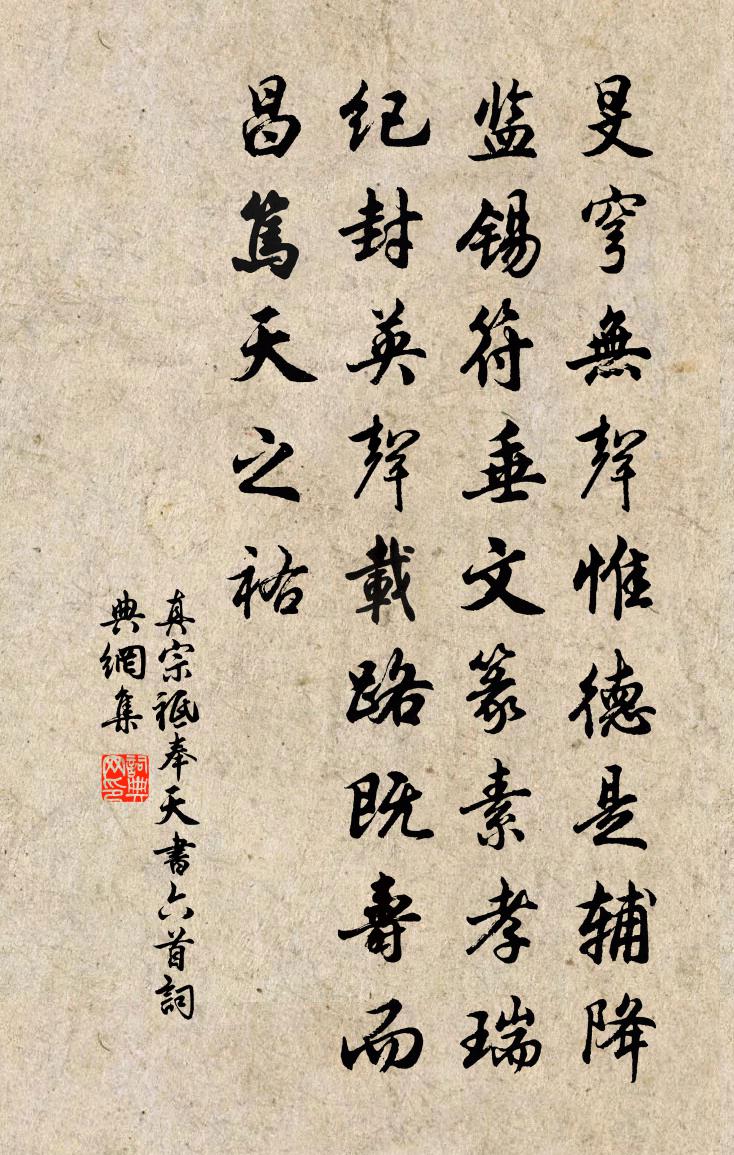 旻穹無聲惟德是辅降
监锡符垂文篆素孝瑞
纪封英聲載路既壽而
昌篤天之祐
真宗祗奉天書六首詞
典網集
詞典网印